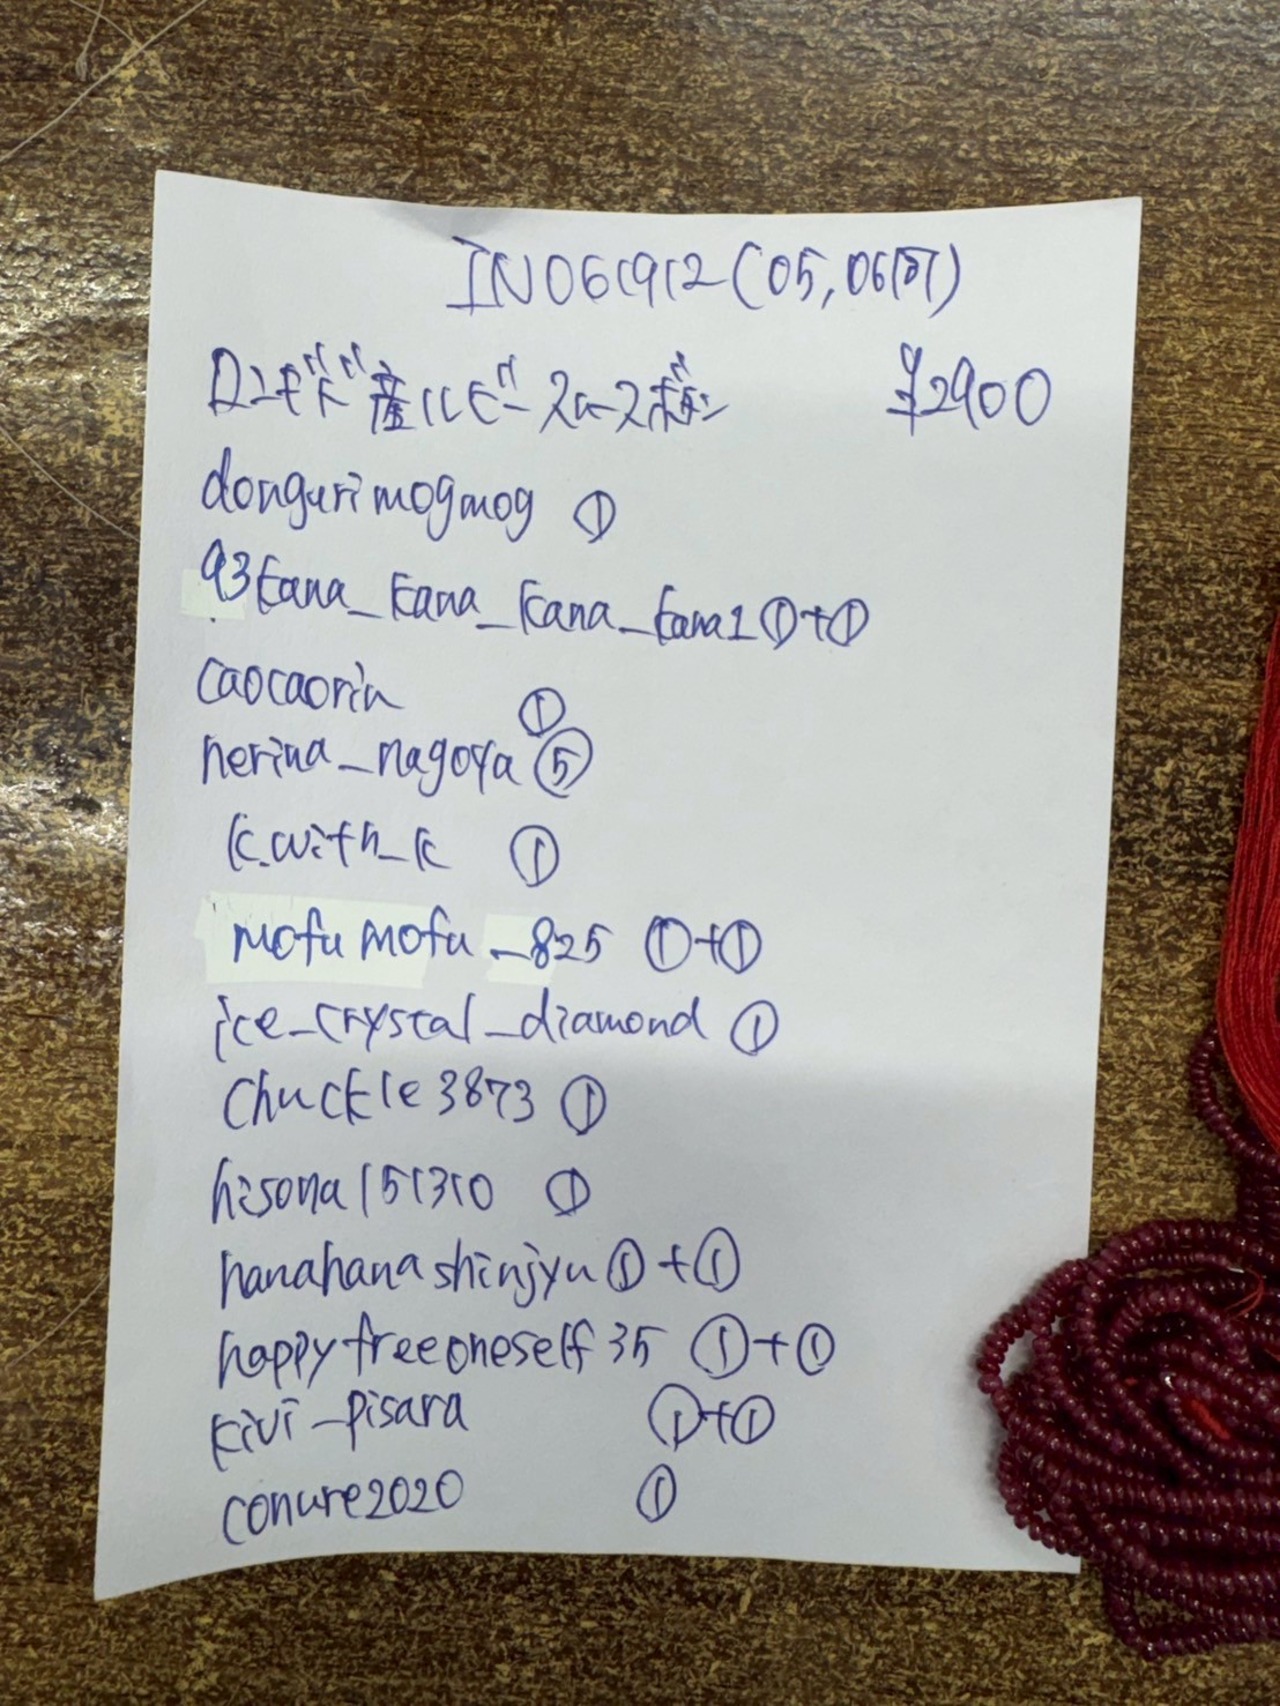 IN061912(05,06同)
ロンボド産ルビースムースボタン ¥2900
dongurimogmog ①
93kana_kana_kana_kana1 ①+①
caocaorin ①
nerina_nagoya ⑤
k.with_k ①
mofumofu_825 ①+①
ice_crystal_diamond ①
chuckle3873 ①
hisona151310 ①
hanahanashinjyu ①+①
happyfreeoneself35 ①+①
kivi_pisara ①+①
conure2020 ①